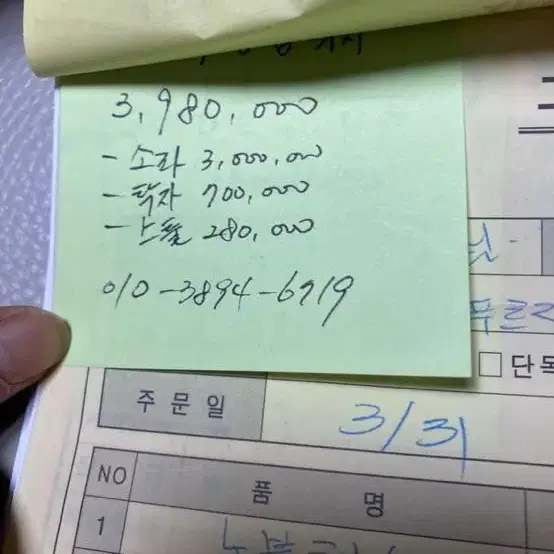 3,980,000
- 소라 3,000,000
- 탁자 700,000
- 스툴 280,000
010-3894-6719
님
푸르지
□ 단독
주 문 일
3/31
NO
품 명
1